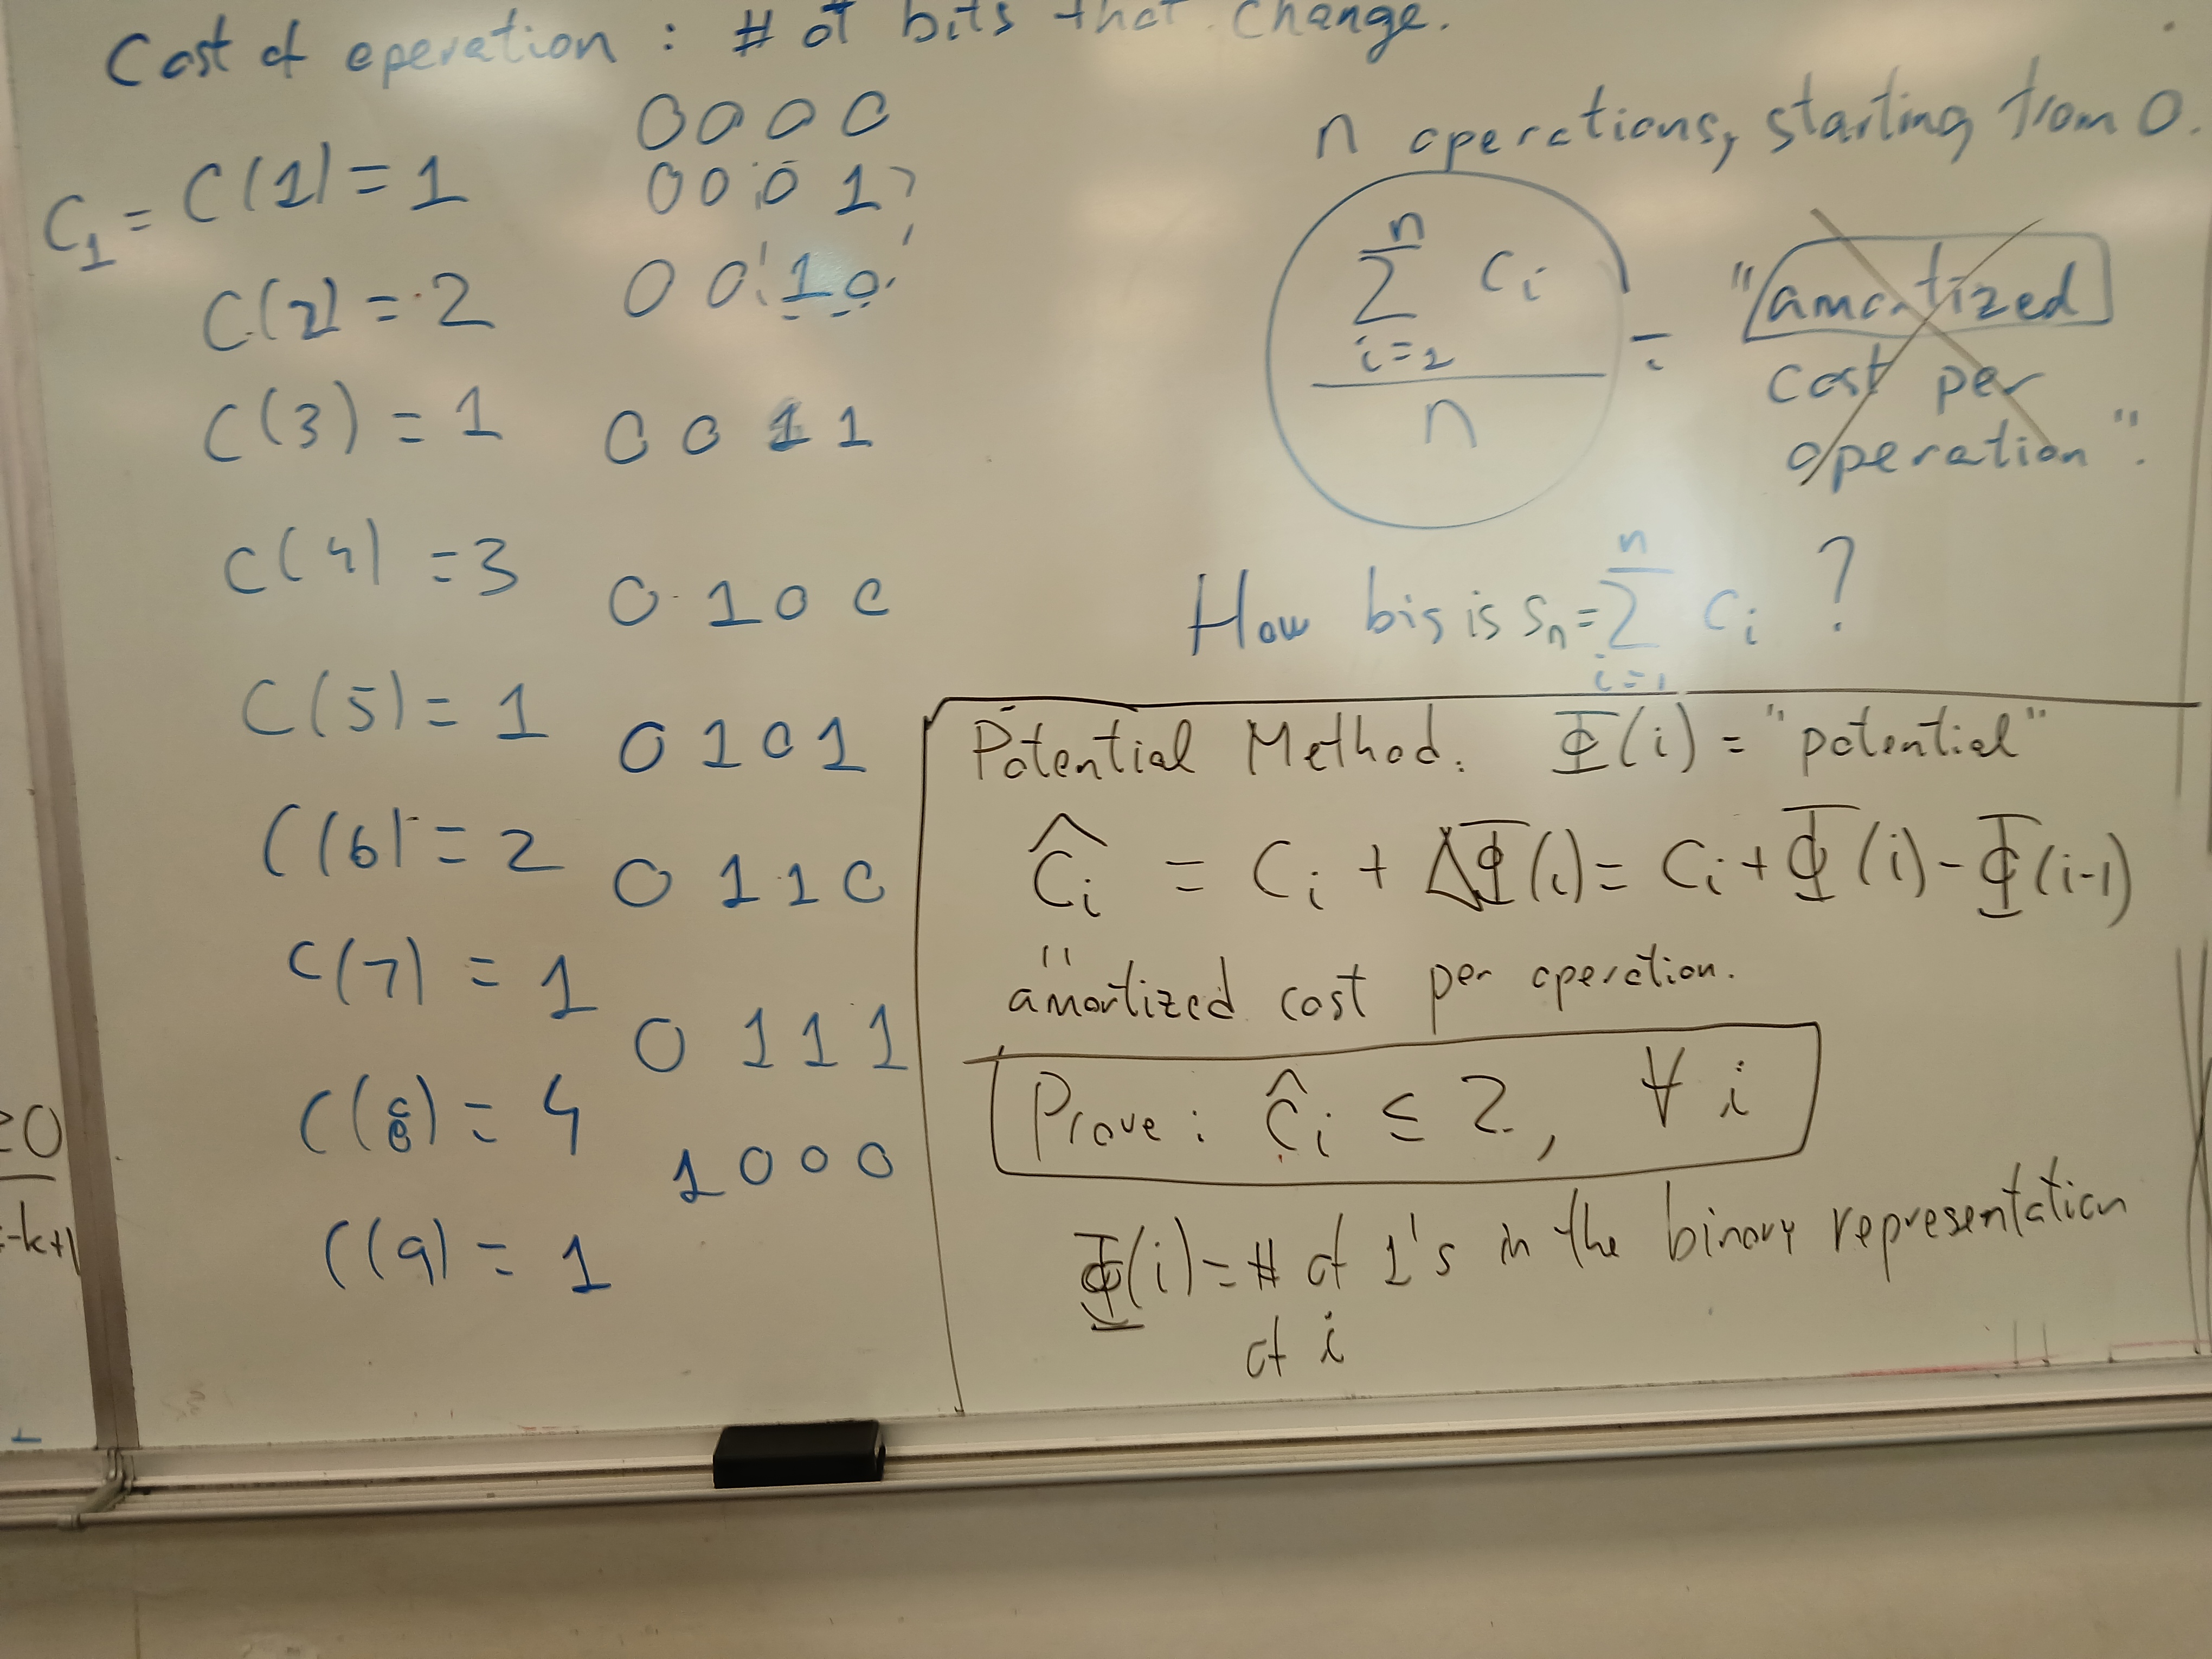 Cost of operation : # of bits that change.
0 0 0 0
C₁ = C(1) = 1 0 0 0 1
C(2) = 2 0 0 1 0
C(3) = 1 0 0 1 1
C(4) = 3 0 1 0 0
C(5) = 1 0 1 0 1
C(6) = 2 0 1 1 0
C(7) = 1 0 1 1 1
C(8) = 4 1 0 0 0
C(9) = 1
n operations, starting from 0.
n
∑ Ci
i=1
n
= "amortized
cost per
operation".
n
How big is Sn = ∑ Ci ?
i=1
Potential Method. Φ(i) = "potential"
Ĉi = Ci + ΔΦ(i) = Ci + Φ(i) - Φ(i-1)
"
amortized cost per operation.
Prove : Ĉi ≤ 2, ∀ i
Φ(i) = # of 1's in the binary representation
of i
≥0
-k+1